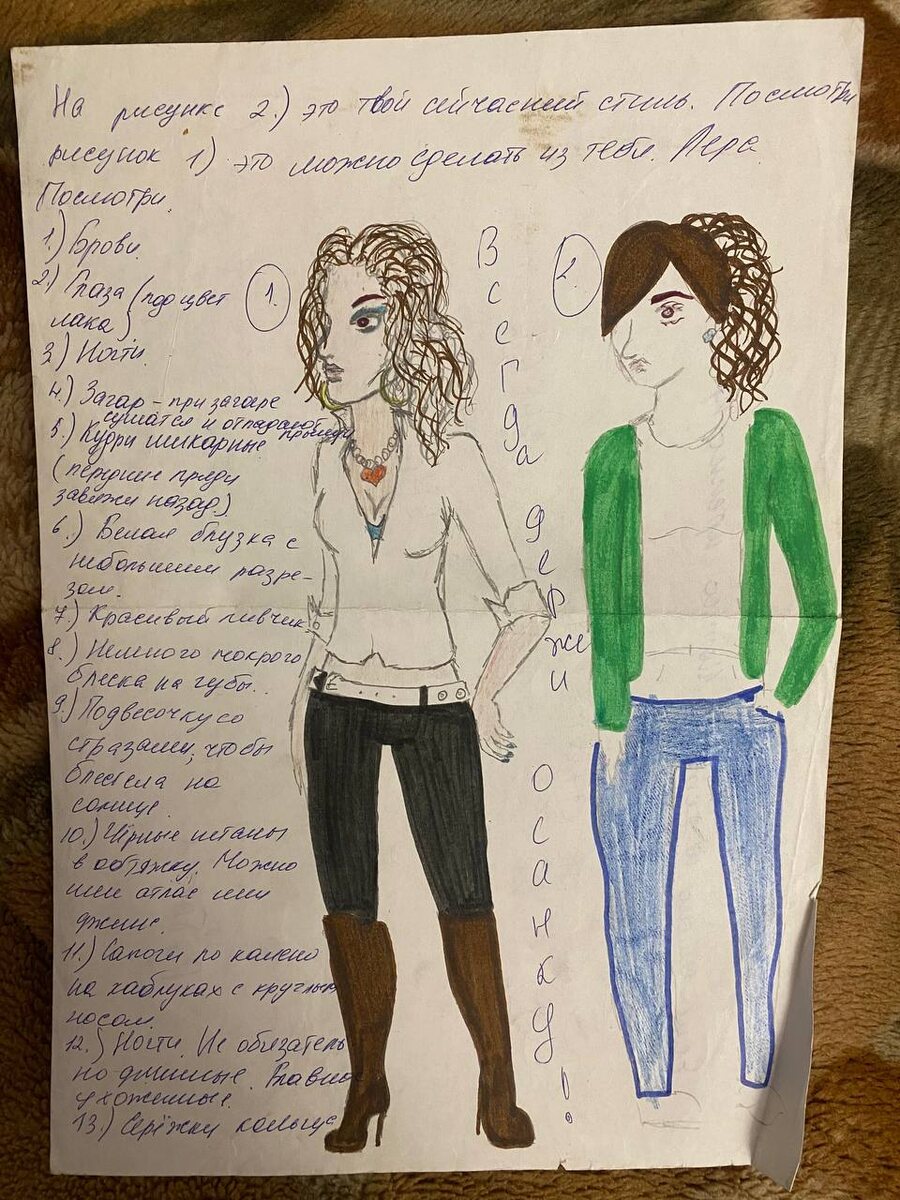 На рисунке 2.) это твой сейчасний стиль. Посмотри
рисунок 1) это можно сделать из тебя. Лера
Посмотри.
1) Брови.
2) Глаза (под цвет
лака)
3) Ногти.
4) Загар - при загаре
сушатся и отпадают прыщи
5.) Кудри шикарные
(передние пряди
завяжи назад.)
6.) Белая блузка с
небольшим разре-
зом.
7) Красивый ливчик
8.) Немного мокрого
блеска на губы.
9.) Подвесочку со
стразами, чтобы
блестела на
солнце.
10.) Чёрные штаны
в обтяжку. Можно
или атлас или
джинс.
11.) Сапоги по колено
на каблуках с круглым
носом.
12.) Ногти. Не обязатель
но длинные. Главно
ухоженные.
13.) Серёжки кольца
1.
Всегда держи осанку!
2.